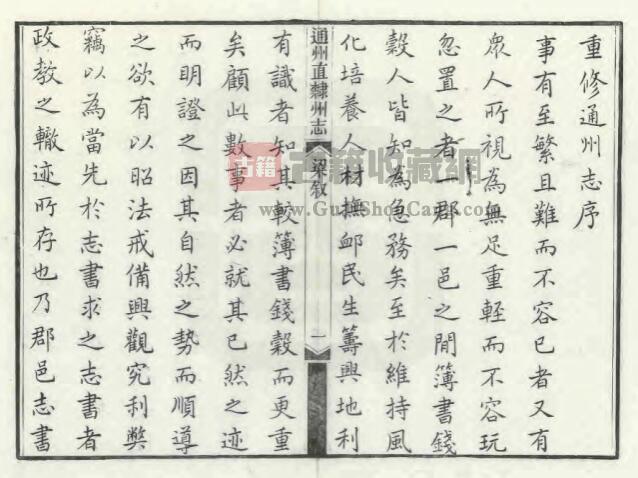 重修通州志序
事有至繁且難而不容已者又有
眾人所視為無足重輕而不容玩
忽置之者一郡一邑之間簿書錢
穀人皆知為急務矣至於維持風
化培養人材撫卹民生籌興地利
通州直隸州志
梁敘
一
有識者知其較簿書錢穀而更重
矣顧此數事者必就其已然之迹
而明證之因其自然之勢而順導
之欲有以昭法戒備興觀究利弊
竊以為當先於志書求之志書者
政教之轍迹所存也乃郡邑志書
古籍
古籍收藏網